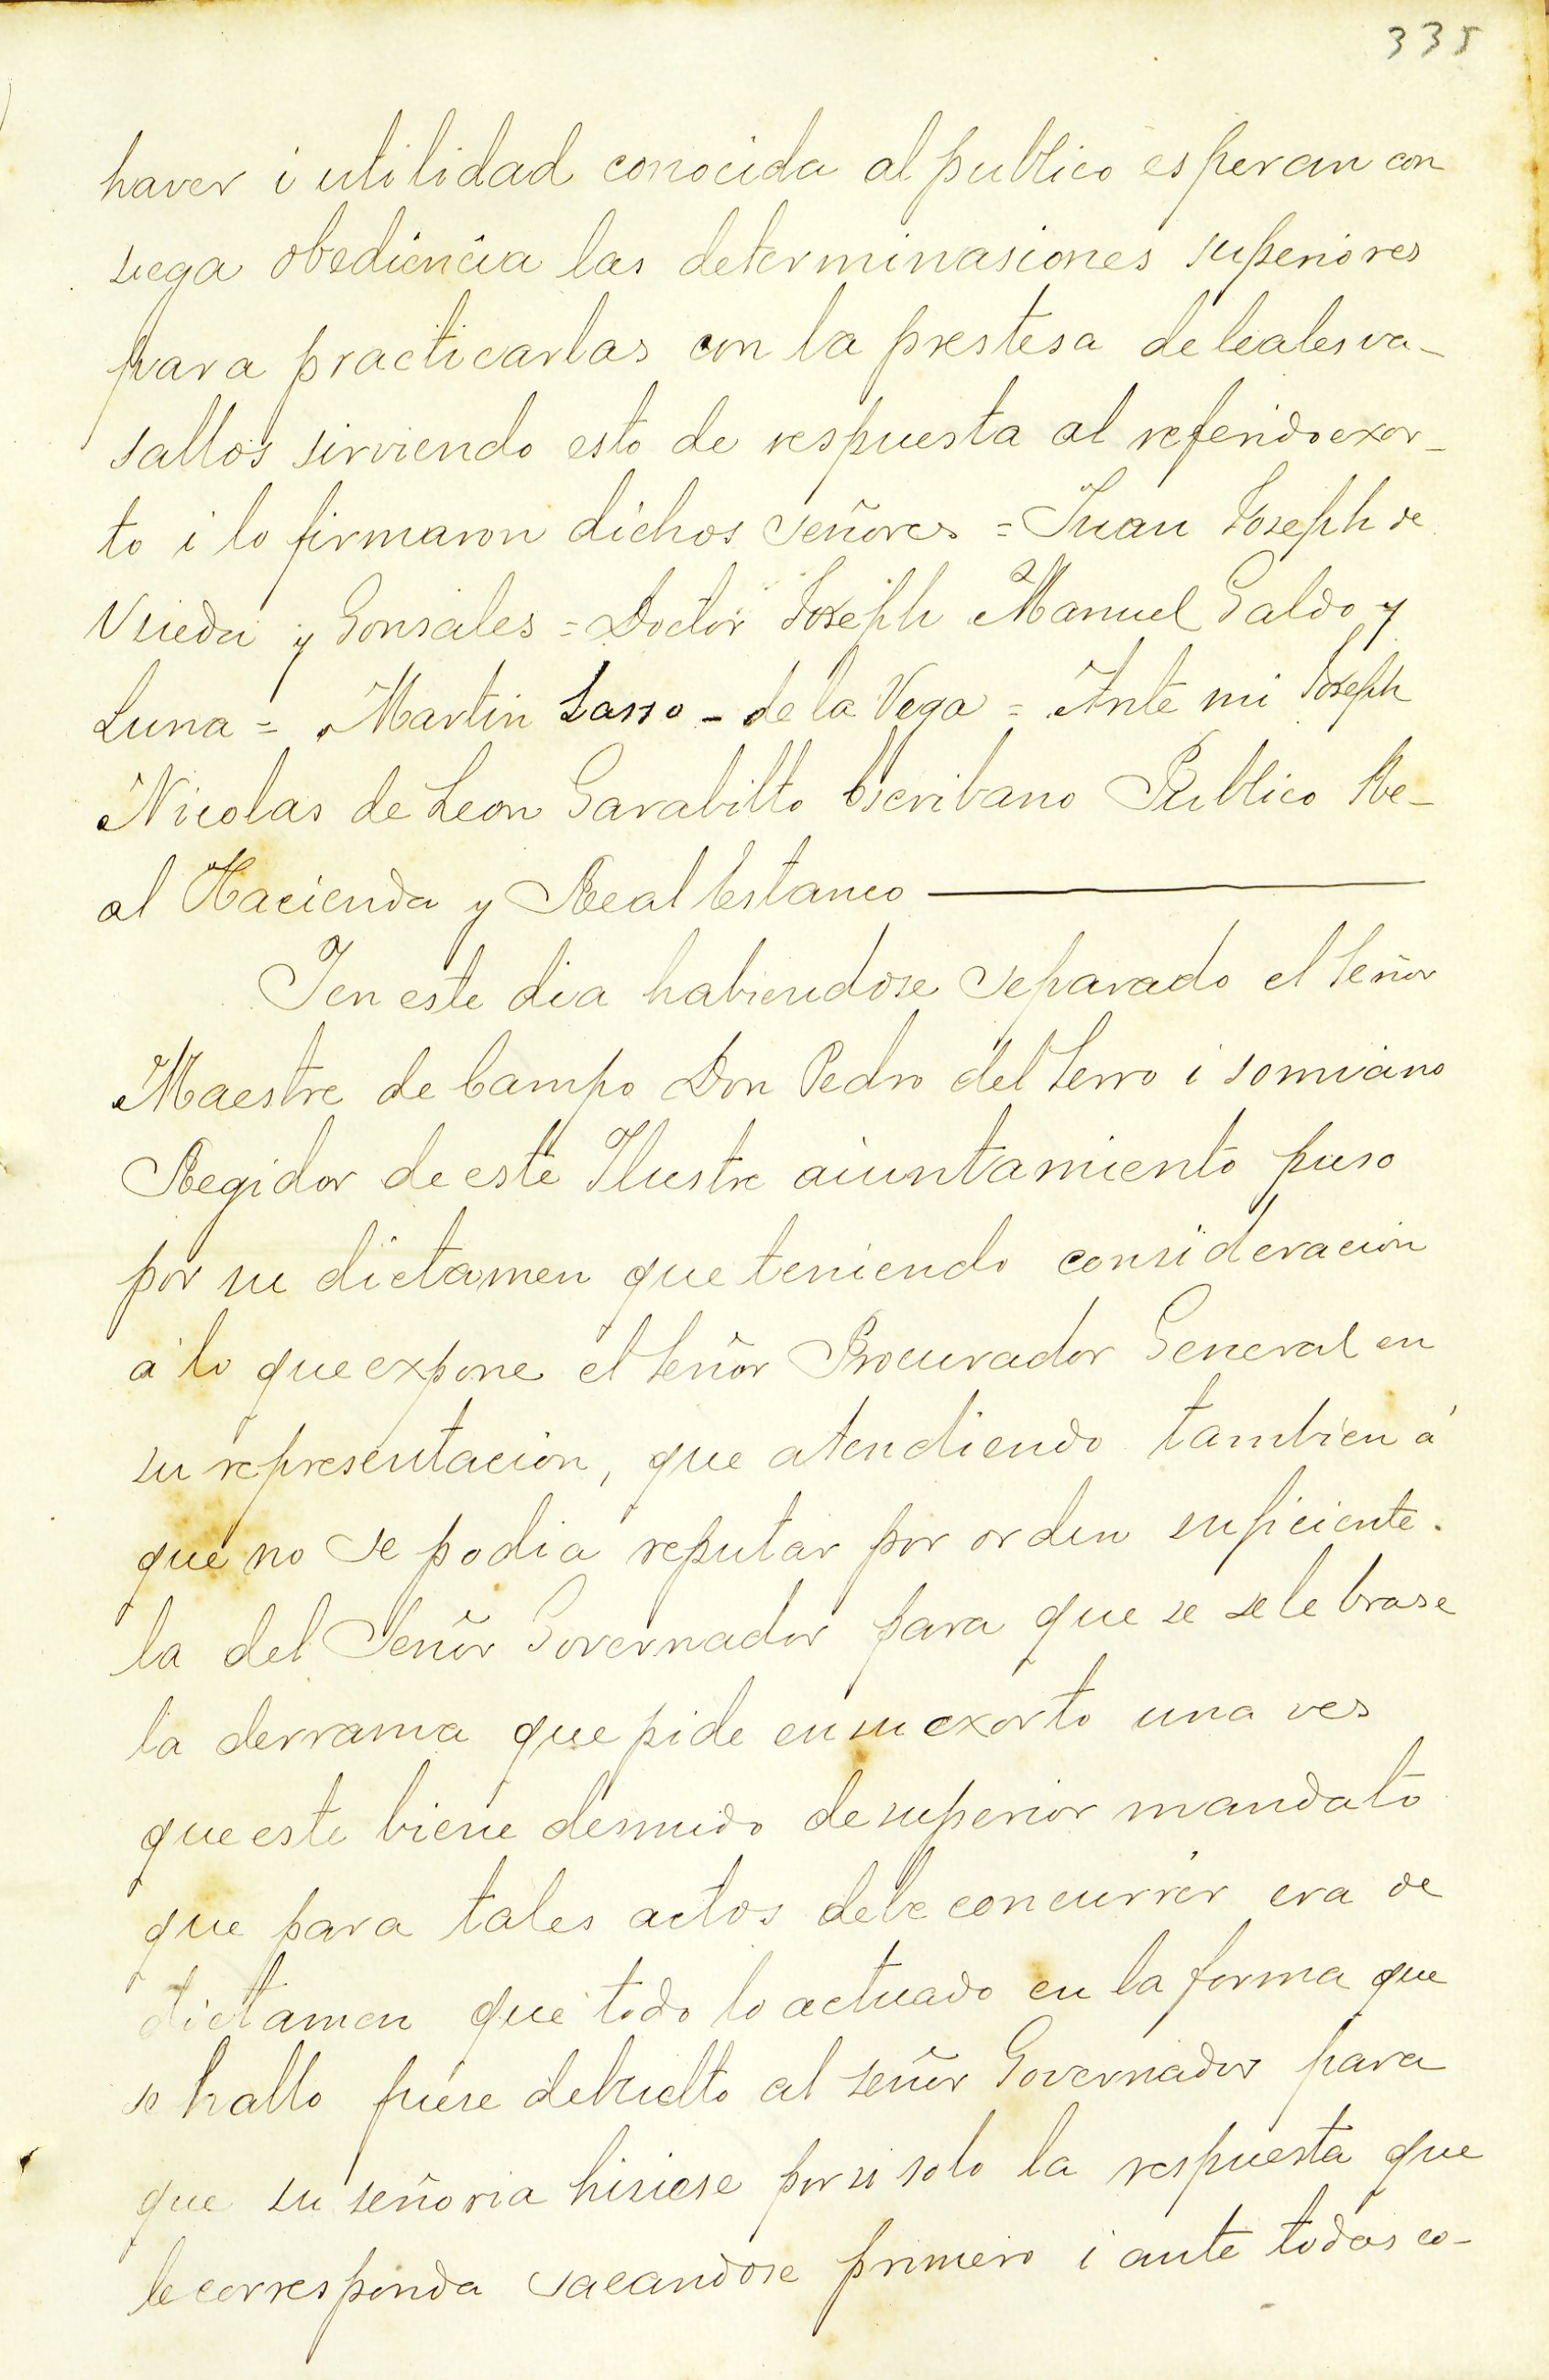 335
haver i utilidad conocida al publico esperan con
siega obediencia las determinasiones superiores
para practicarlas con la prestesa de leales va-
sallos sirviendo esto de respuesta al referido exor-
to i lo firmaron dichos señores = Juan Joseph de
Uueda y Gonsales = Doctor Joseph Manuel Galdo y
Luna = Martin Lasso - de la Vega = Ante mi Joseph
Nicolas de Leon Garabitto Escribano Publico Re-
al Hacienda y Real Estanco
I en este dia habiendose separado el Señor
Maestre de Campo Don Pedro del Serro i somviano
Regidor de este Ilustre aiuntamiento puso
por su dictamen que teniendo consideracion
á lo que expone el Señor Procurador General en
su representacion, que atendiendo tambien á
que no se podia reputar por orden suficiente.
la del Señor Governador para que se selebrase
la derrama que pide en su exorto una ves
que este biene desnudo de superior mandato
que para tales actos debe concurrir era de
dictamen que todo lo actuado en la forma que
se hallo fuese debuelto al señor Governador para
que su señoria hisiese por si solo la respuesta que
le corresponda sacandose primero i ante todas co-